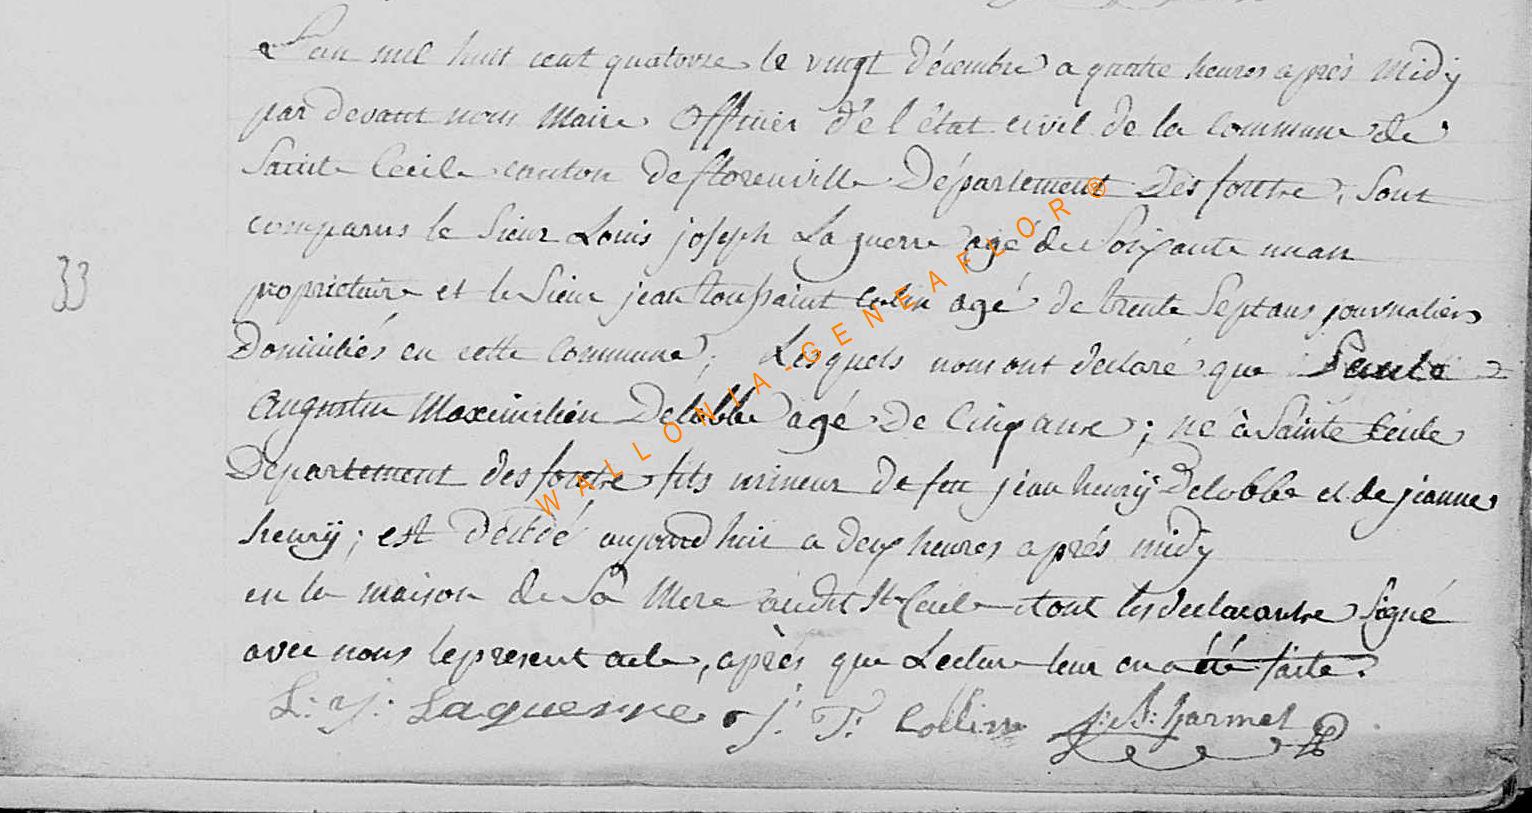 L'an mil huit cent quatorze le vingt Décembre a quatre heures après Midÿ
par devant nous Maire Officier de l'état civil de la commune de
Sainte Cecile canton de florenville Département Des forêts, Sont
comparus le Sieur Louis joseph Laguerre agé de Soixante un an
33
proprietaire et le Sieur jean toussaint Colin agé de trente Sept ans journaliers
Domiciliés en cette commune; Lesquels nous ont declaré que
Augustin Maximilien Delobbe agé De Cinq ans; né à Sainte Cécile
Département des forêts fils mineur de feu jean henrÿ Delobbe et de jeanne
henrÿ; est décédé aujourd'hui a deux heures après midÿ
en la maison de Sa Mere audit St Cecile et ont les declarants Signé
avec nous le present acte, après que Lecture leur en a été faite.
L: J: Laguerre J: T: Collin J: B: harmel
WALLONIA-GENEAFLOR®